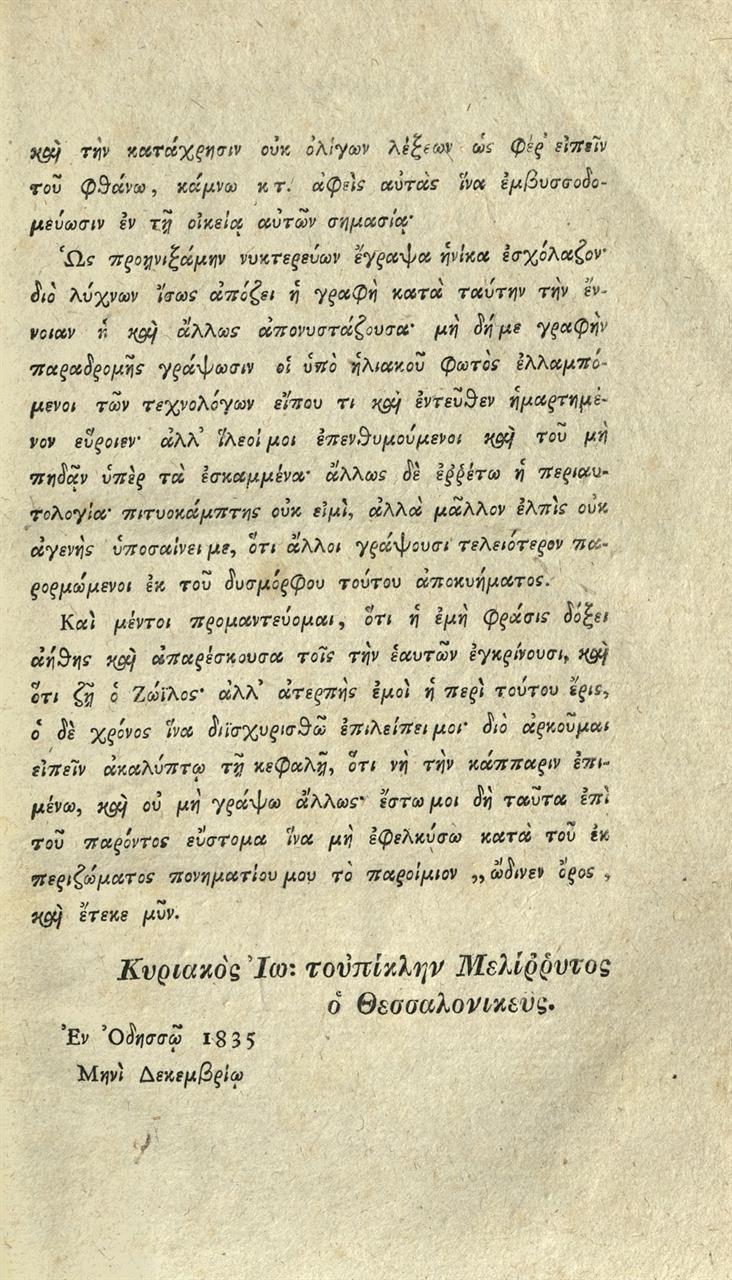 καὶ τὴν κατάχρησιν οὐκ ὀλίγων λέξεων ὡς φέρ' εἰπεῖν
τοῦ φθάνω, κάμνω κ τ. ἀφεὶς αὐτὰς ἵνα ἐμβυσσοδο-
μεύωσιν ἐν τῇ οἰκείᾳ αὐτῶν σημασίᾳ·
Ὡς προῃνιξάμην νυκτερεύων ἔγραψα ἡνίκα ἐσχόλαζον·
διὸ λύχνων ἴσως ἀπόζει ἡ γραφὴ κατὰ ταύτην τὴν ἔν-
νοιαν ἢ καὶ ἄλλως ἀπονυστάζουσα· μὴ δή με γραφὴν
παραδρομῆς γράψωσιν οἱ ὑπὸ ἡλιακοῦ φωτὸς ἐλλαμπό-
μενοι τῶν τεχνολόγων εἴπου τι καὶ ἐντεῦθεν ἡμαρτημέ-
νον εὕροιεν· ἀλλ' ἵλεοί μοι ἐπενθυμούμενοι καὶ τοῦ μὴ
πηδᾷν ὑπὲρ τὰ ἐσκαμμένα· ἄλλως δὲ ἐῤῥέτω ἡ περιαυ-
τολογία· πιτυοκάμπτης οὐκ εἰμὶ, ἀλλὰ μᾶλλον ἐλπὶς οὐκ
ἀγενὴς ὑποσαίνει με, ὅτι ἄλλοι γράψουσι τελειότερον πα-
ρορμώμενοι ἐκ τοῦ δυσμόρφου τούτου ἀποκυήματος.
Καὶ μέντοι προμαντεύομαι, ὅτι ἡ ἐμὴ φράσις δόξει
ἀήθης καὶ ἀπαρέσκουσα τοῖς τὴν ἑαυτῶν ἐγκρίνουσι, καὶ
ὅτι ζῇ ὁ Ζώϊλος· ἀλλ' ἀτερπὴς ἐμοὶ ἡ περὶ τούτου ἔρις,
ὁ δὲ χρόνος ἵνα διϊσχυρισθῶ ἐπιλείπει μοι· διὸ ἀρκοῦμαι
εἰπεῖν ἀκαλύπτῳ τῇ κεφαλῇ, ὅτι νὴ τὴν κάππαριν ἐπι-
μένω, καὶ οὐ μὴ γράψω ἄλλως· ἔστω μοι δὴ ταῦτα ἐπὶ
τοῦ παρόντος εὔστομα ἵνα μὴ ἐφελκύσω κατὰ τοῦ ἐκ
περιζώματος πονηματίου μου τὸ παροίμιον „ὤδινεν ὄρος,
καὶ ἔτεκε μῦν.
Κυριακὸς Ἰω: τοὐπίκλην Μελίῤῥυτος
ὁ Θεσσαλονικεύς.
Ἐν Ὀδησσῷ 1835
Μηνὶ Δεκεμβρίῳ